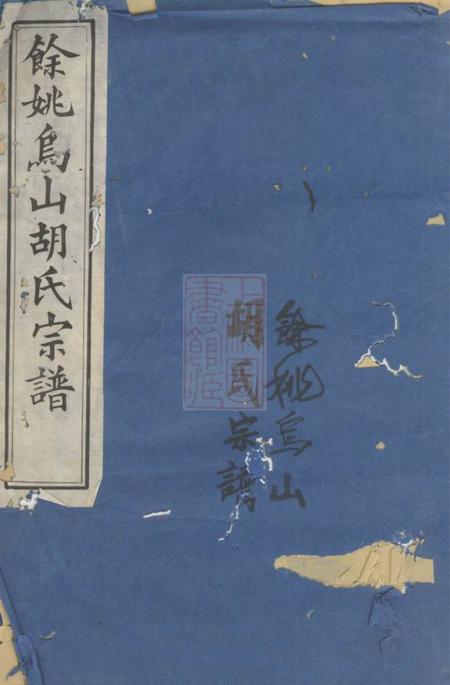 餘姚烏山胡氏宗譜
餘姚烏山
胡氏宗譜
上海圖書館藏